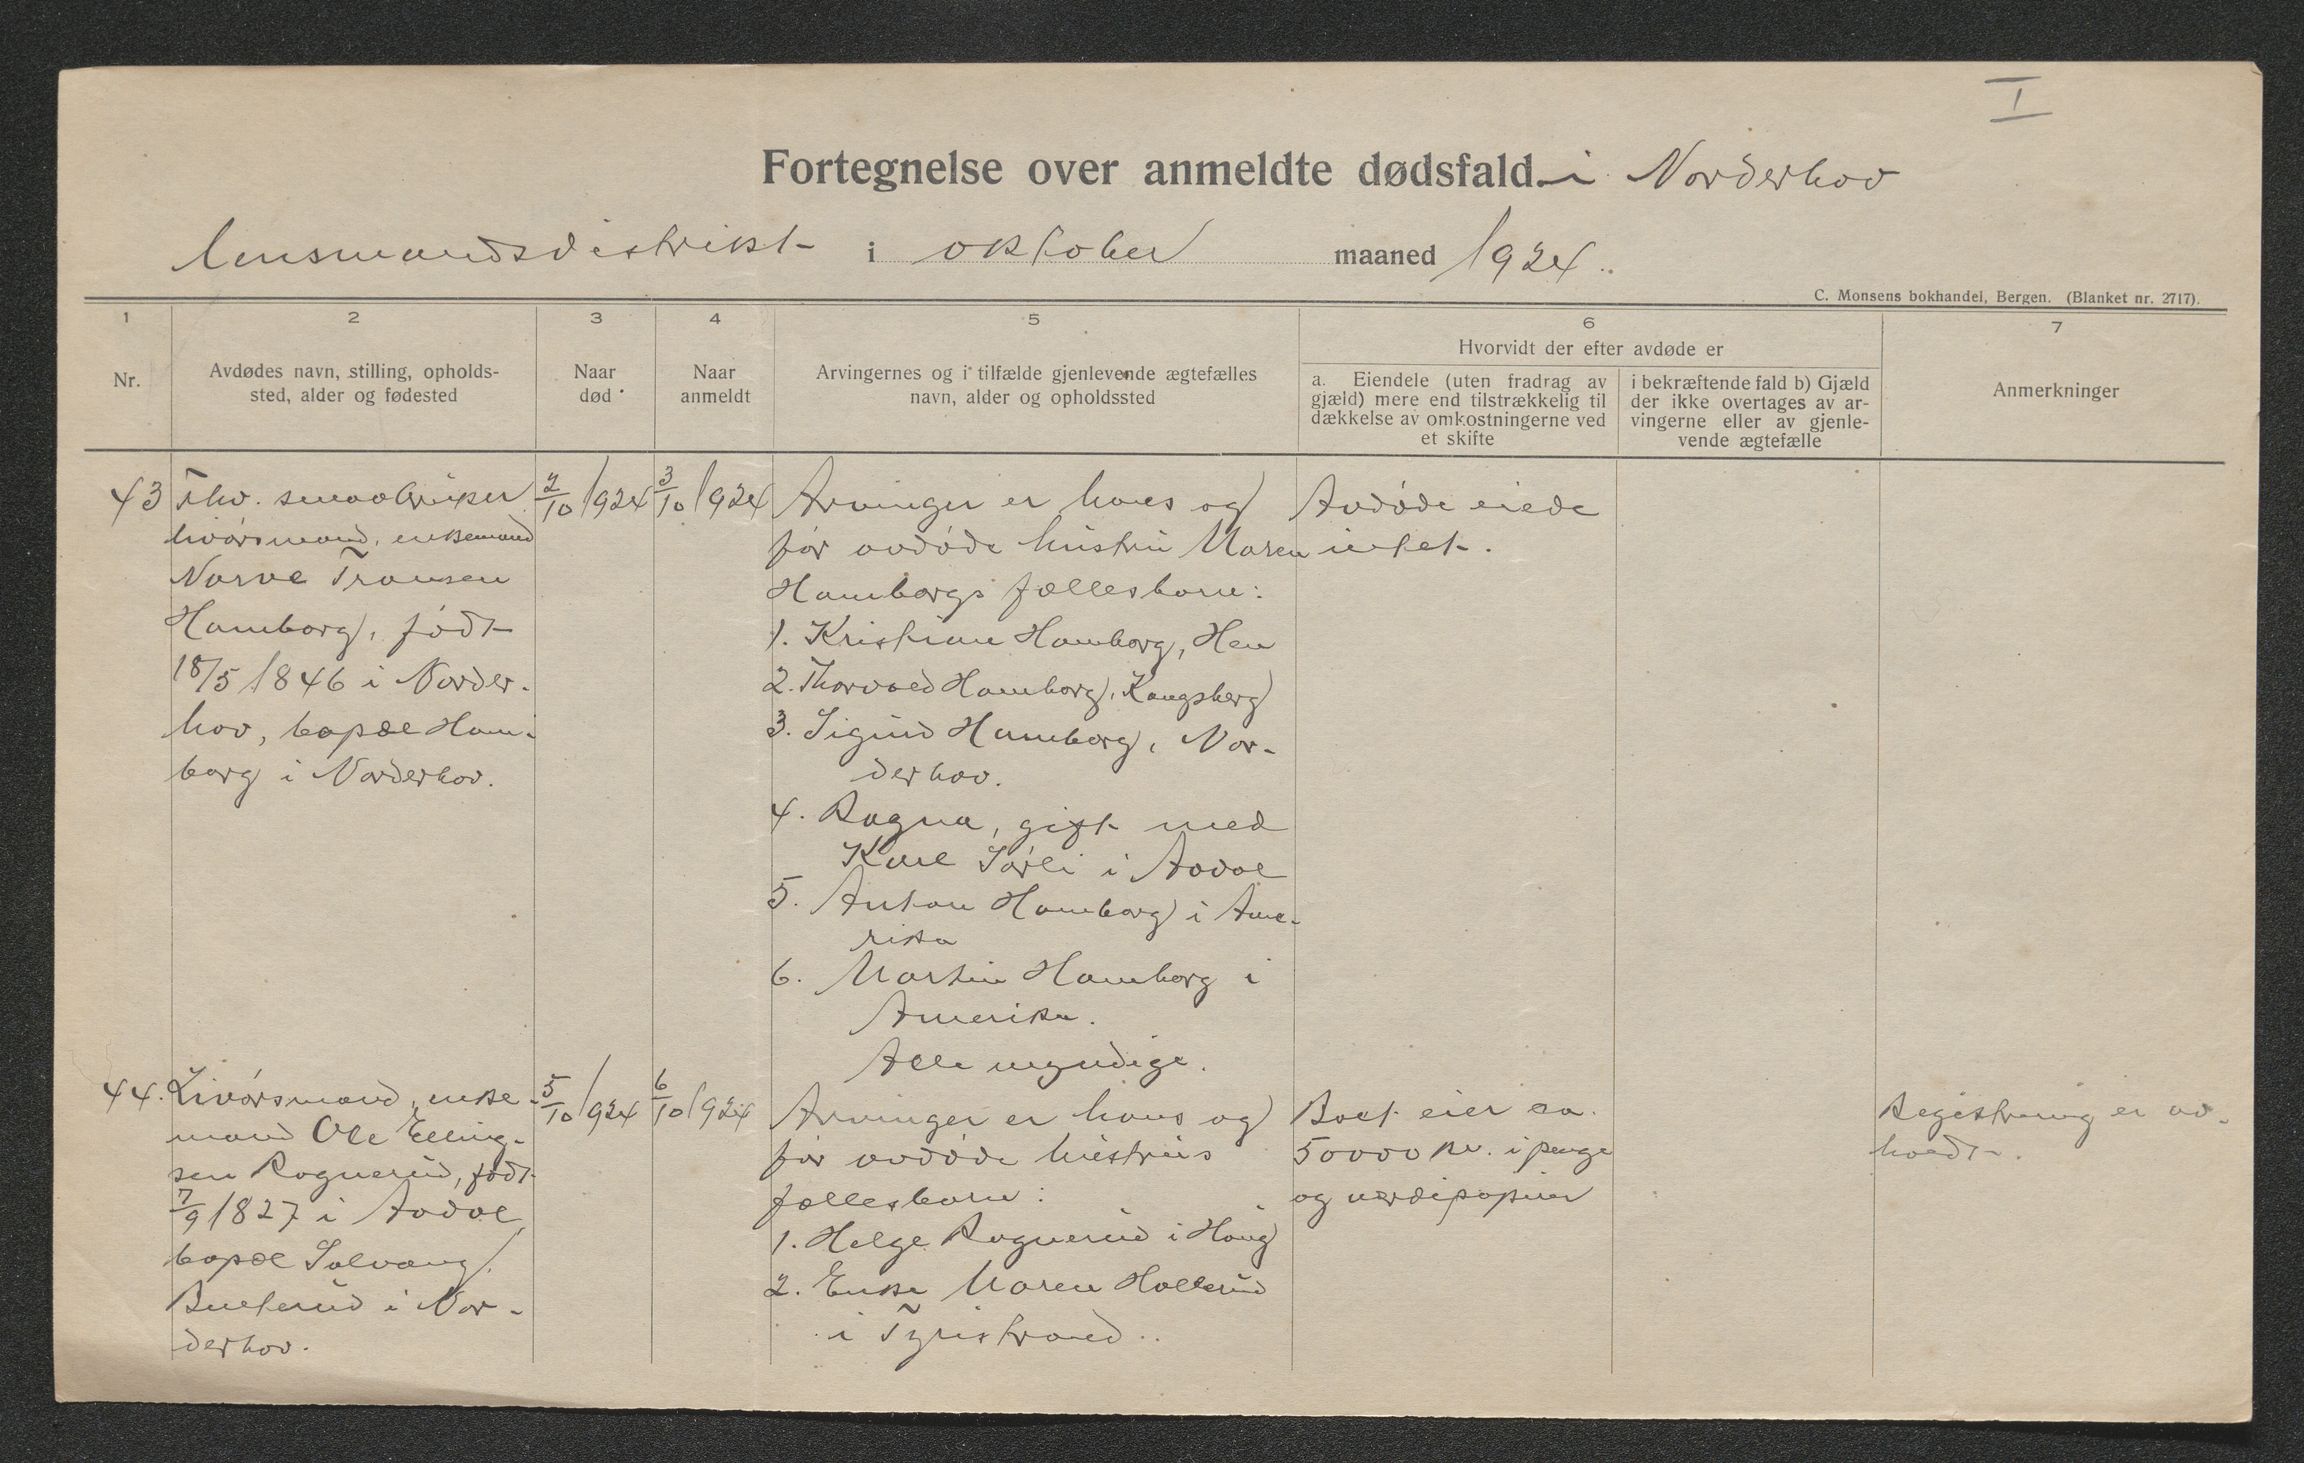 I
Fortegnelse over anmeldte dødsfald i Norderhov
lensmandsdistrikt i oktober maaned 1924.
C. Monsens bokhandel, Bergen. (Blanket nr. 2717).
1
2
3
4
5
6
7
Nr.
Avdødes navn, stilling, opholds-
sted, alder og fødested
Naar
død
Naar
anmeldt
Arvingernes og i tilfælde gjenlevende ægtefælles
navn, alder og opholdssted
Hvorvidt der efter avdøde er
a. Eiendele (uten fradrag av
gjæld) mere end tilstrækkelig til
dækkelse av omkostningerne ved
et skifte
i bekræftende fald b) Gjæld
der ikke overtages av ar-
vingerne eller av gjenle-
vende ægtefælle
Anmerkninger
43
Fhv. smaabruker
livørsmand, enkemand
Narve Transen
Hamborg, født
18/5 1846 i Norder-
hov, bopæl Ham-
borg i Norderhov.
2/10 1924
3/10 1924
Arvinger er hans og
før avdøde hustru Maren
Hamborgs fællesbarn:
1. Kristian Hamborg, Hen
2. Thorvald Hamborg, Kongsberg
3. Sigurd Hamborg, Nor-
derhov.
4. Ragna, gift med
Karl Sørli i Aadal
5. Anton Hamborg i Ame-
rika
6. Martin Hamborg i
Amerika.
Alle myndige.
Avdøde eiede
intet.
44.
Livørsmand, enke-
mand Ole Elling-
sen Rognerud, født
7/9 1827 i Aadal,
bopæl Solvang,
Bueterud i Nor-
derhov.
5/10 1924
6/10 1924
Arvinger er hans og
før avdøde hustrus
fællesbarn:
1. Helge Rognerud i Haug
2. Enke Maren Hallerud
i Tyristrand.
Boet eier ca.
50000 kr. i penge
og værdipapirer
Registrering er av-
holdt.